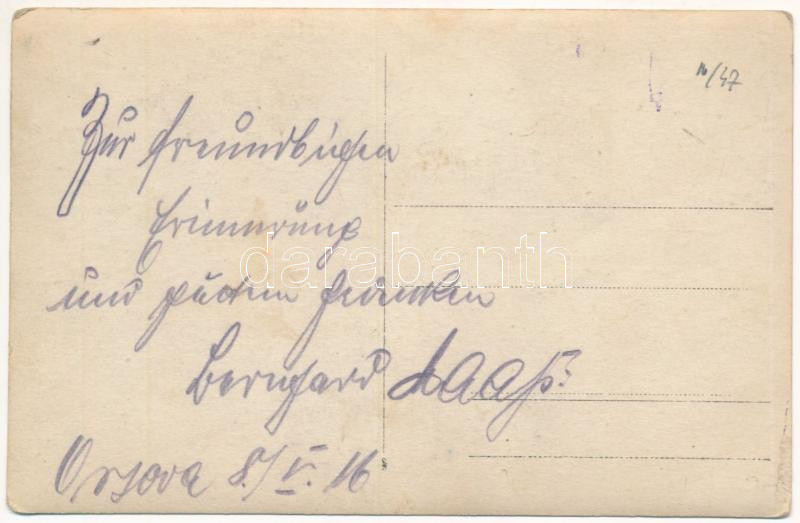 16/47
Zur freundlichen
Erinnerung
und guten Gedenken
Bernhard Haaß.
Orsova 8./V. 16
darabanth.com